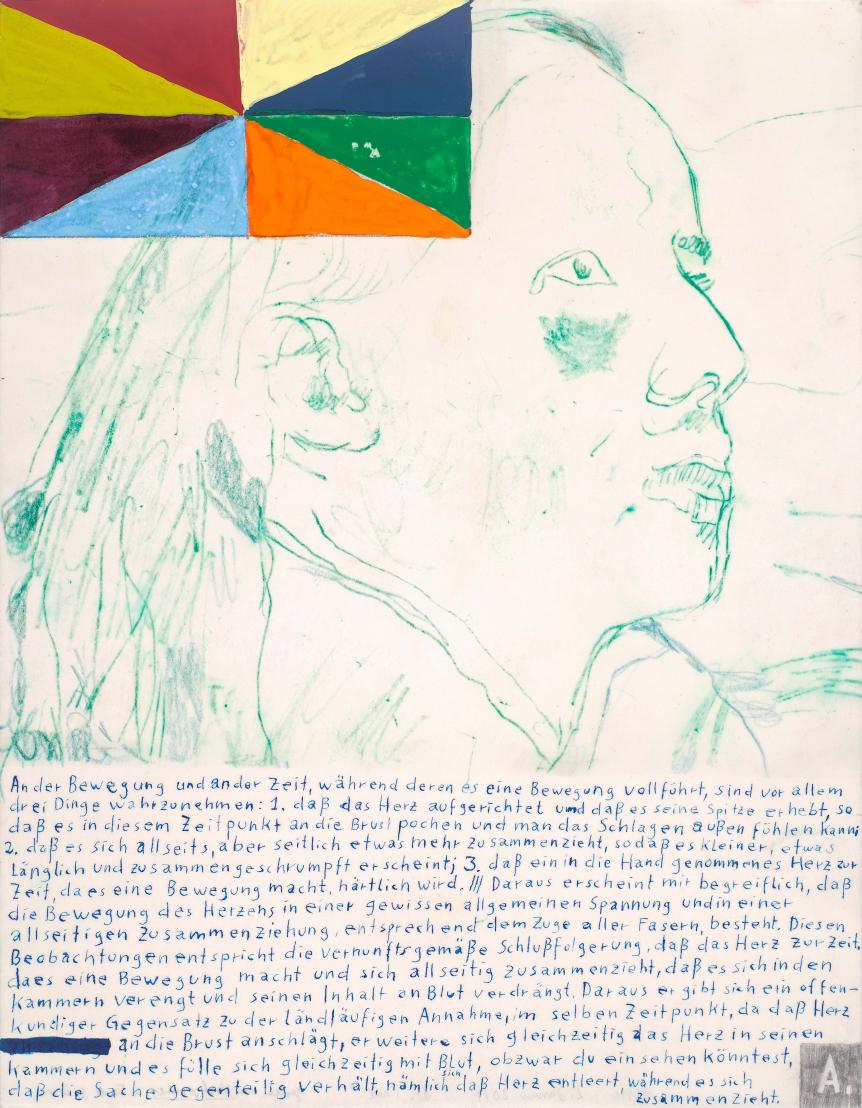 An der Bewegung und an der Zeit, während deren es eine Bewegung vollführt, sind vor allem
drei Dinge wahrzunehmen: 1. daß das Herz aufgerichtet und daß es seine Spitze erhebt, so
daß es in diesem Zeitpunkt an die Brust pochen und man das Schlagen außen fühlen kann;
2. daß es sich allseits, aber seitlich etwas mehr zusammenzieht, sodaß es kleiner, etwas
Länglich und zusammengeschrumpft erscheint; 3. daß ein in die Hand genommenes Herz zur
Zeit, da es eine Bewegung macht, härtlich wird. /// Daraus erscheint mir begreiflich, daß
die Bewegung des Herzens in einer gewissen allgemeinen Spannung und in einer
allseitigen Zusammenziehung, entsprechend dem Zuge aller Fasern, besteht. Diesen
Beobachtungen entspricht die vernunftsgemäße Schlußfolgerung, daß das Herz zur Zeit,
da es eine Bewegung macht und sich allseitig zusammenzieht, daß es sich in den
Kammern verengt und seinen Inhalt an Blut verdrängt. Daraus ergibt sich ein offen-
kundiger Gegensatz zu der landläufigen Annahme, im selben Zeitpunkt, da daß Herz
an die Brust anschlägt, erweitere sich gleichzeitig das Herz in seinen
Kammern und es fülle sich gleichzeitig mit Blut, obzwar du einsehen könntest,
daß die Sache gegenteilig verhält, nämlich sich daß Herz entleert, während es sich
zusammenzieht.
A.